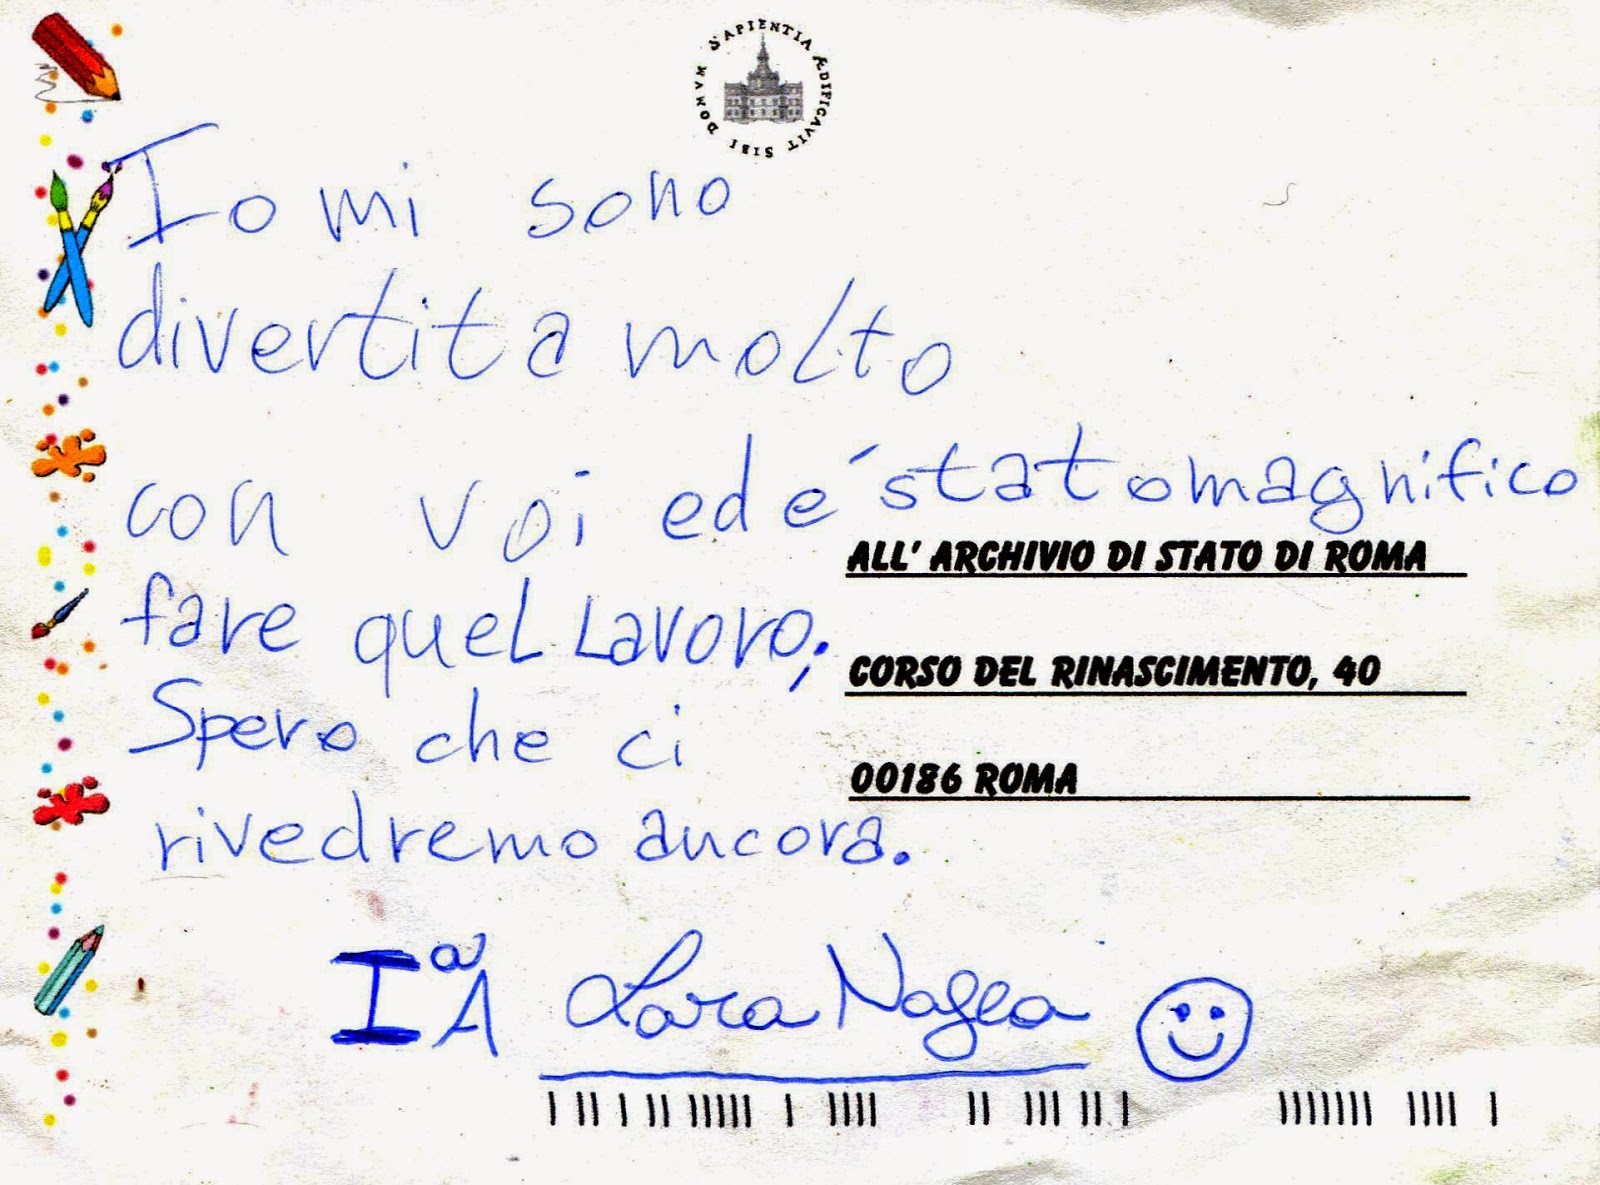 SAPIENTIA ÆDIFICAVIT SIBI DOMVM
Io mi sono
divertita molto
con voi ed é stato magnifico
fare quel Lavoro;
Spero che ci
rivedremo ancora.
ALL' ARCHIVIO DI STATO DI ROMA
CORSO DEL RINASCIMENTO, 40
00186 ROMA
Iª A Lara